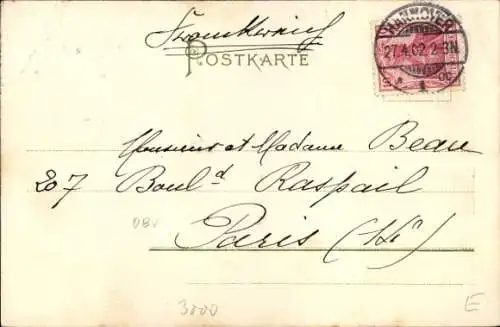 Frankreich
POSTKARTE
HANNOVER
27.4.02.2-3N
Monsieur et Madame Beau
207 Boul.d Raspail
Paris
OBV
3000
E